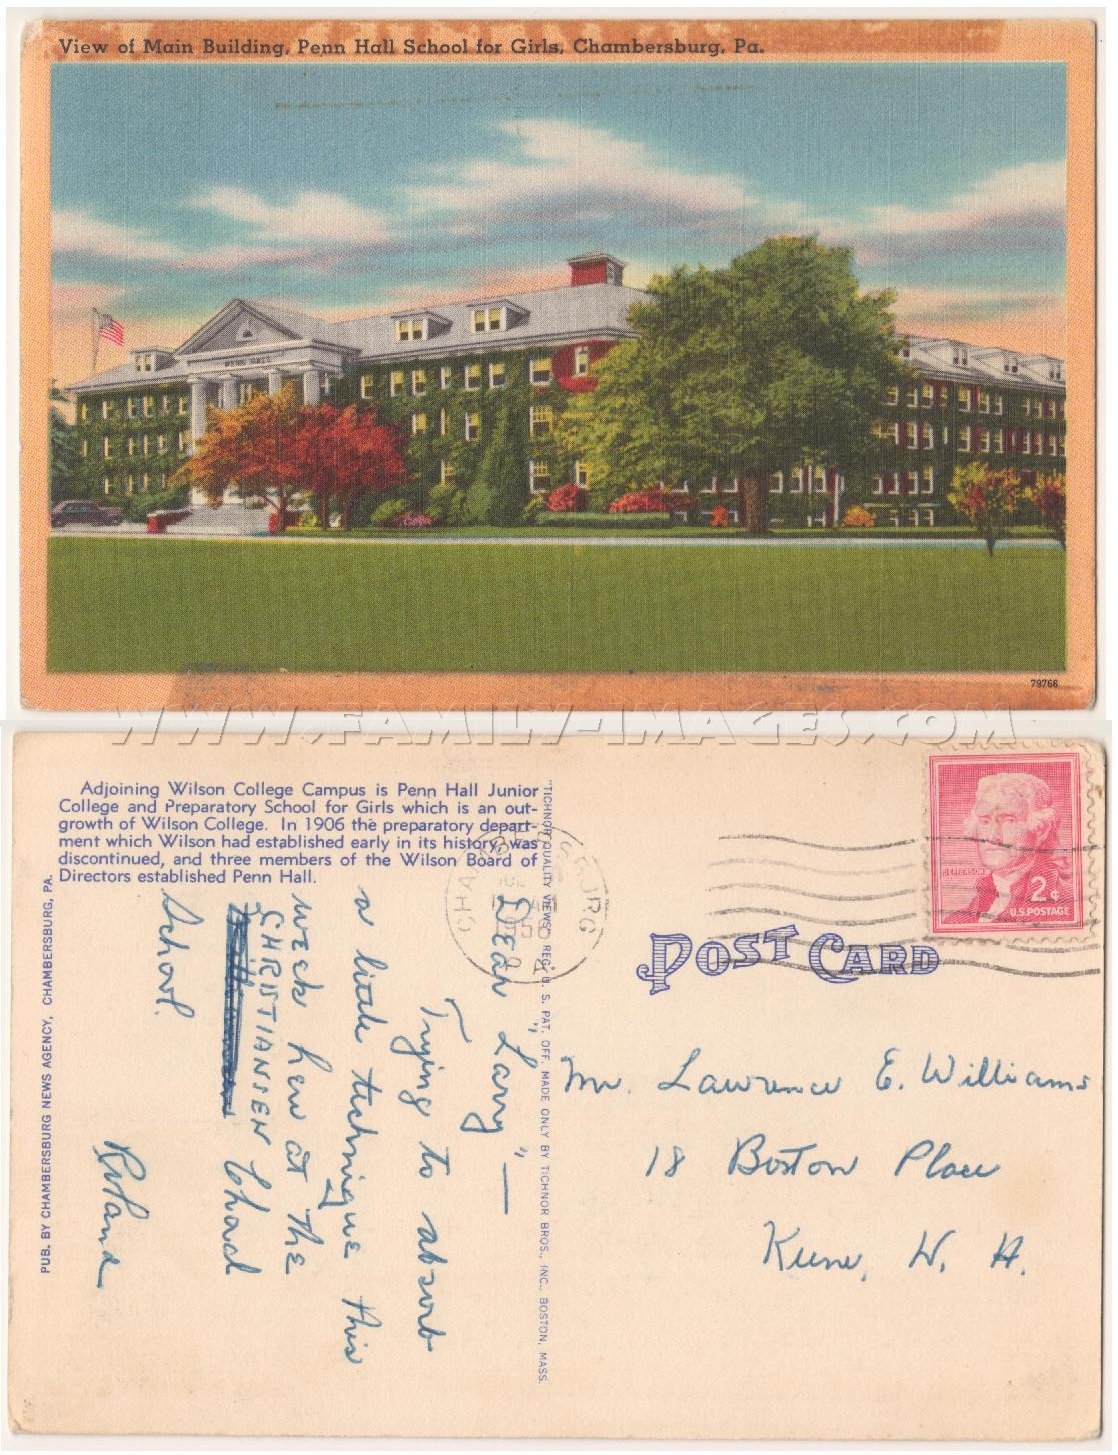 View of Main Building, Penn Hall School for Girls, Chambersburg, Pa.
PENN HALL
79766
WWW.FAMILY-IMAGES.COM
Adjoining Wilson College Campus is Penn Hall Junior
College and Preparatory School for Girls which is an out-
growth of Wilson College. In 1906 the preparatory depart-
ment which Wilson had established early in its history, was
discontinued, and three members of the Wilson Board of
Directors established Penn Hall.
PUB. BY CHAMBERSBURG NEWS AGENCY, CHAMBERSBURG, PA.
"TICHNOR QUALITY VIEWS," REG. U. S. PAT. OFF. MADE ONLY BY TICHNOR BROS., INC., BOSTON, MASS.
Dear "Larry" —
Trying to absorb
a little technique this
week here at the
CHRISTIANSEN Choral
School.
Roland
CHAMBERSBURG
AM
PA
JEFFERSON
2¢
U.S. POSTAGE
POST CARD
Mr. Lawrence E. Williams
18 Boston Place
Keene, N. H.